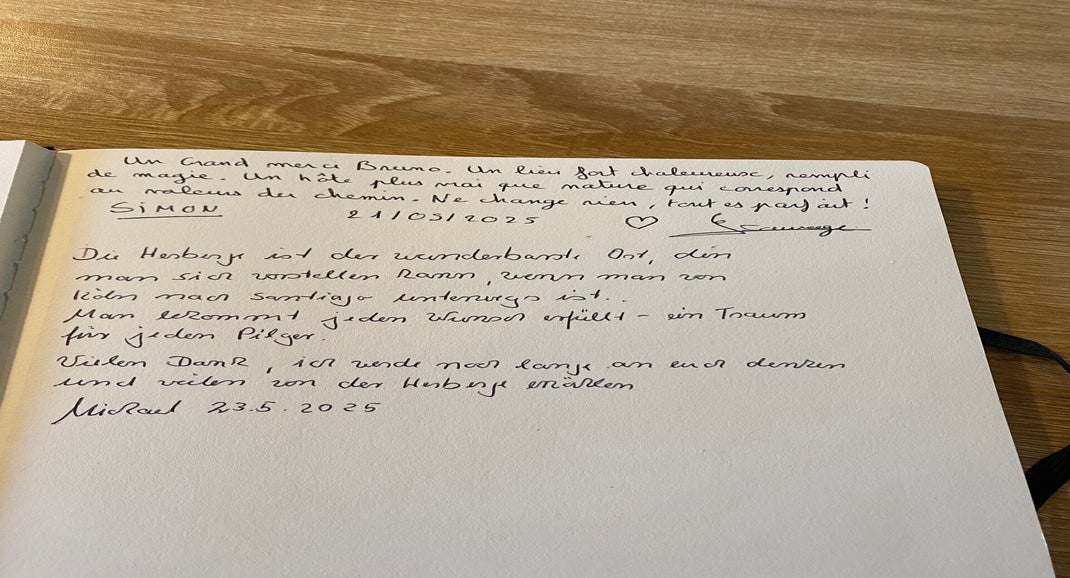 Un Grand merci Bruno. Un lieu fort chaleureux, rempli
de magie. Un hôte plus vrai que nature qui correspond
au valeurs du chemin. Ne change rien, tout es parfait !
SIMON 21/05/2025 ♡
Die Herberge ist der wunderbarste Ort, den
man sich vorstellen kann, wenn man von
Köln nach Santiago unterwegs ist..
Man bekommt jeden Wunsch erfüllt - ein Traum
für jeden Pilger.
Vielen Dank, ich werde noch lange an euch denken
und vielen von der Herberge erzählen
Michael 23.5.2025